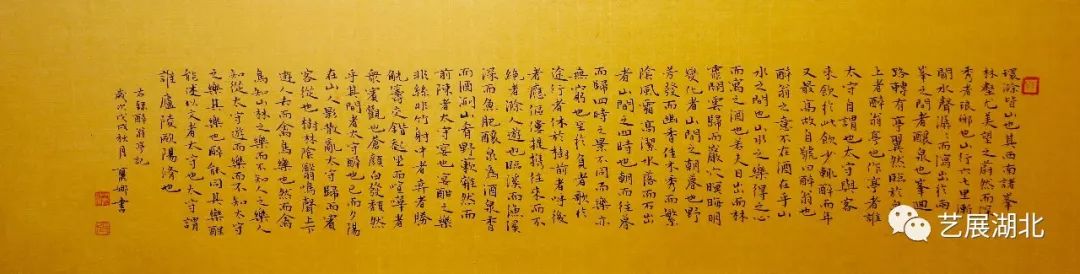 環滁皆山也其西南諸峯
林壑尤美望之蔚然而深
秀者琅琊也山行六七里漸
聞水聲潺潺而瀉出於兩
峯之間者釀泉也峯迴
路轉有亭翼然臨於泉
上者醉翁亭也作亭者誰
太守自謂也太守與客
來飲於此飲少輒醉而年
又最高故自號曰醉翁也
醉翁之意不在酒在乎山
水之間也山水之樂得之心
而寓之酒也若夫日出而林
霏開雲歸而巖穴暝晦明
變化者山間之朝暮也野
芳發而幽香佳木秀而繁
陰風霜高潔水落而石出
者山間之四時也朝而往暮
而歸四時之景不同而樂亦
無窮也至於負者歌於
途行者休於樹前者呼後
者應傴僂提攜往來而不
絕者滁人遊也臨溪而漁溪
深而魚肥釀泉為酒泉香
而酒洌山肴野蔌雜然而
前陳者太守宴也宴酣之樂
非絲非竹射中者弈者勝
觥籌交錯起坐而喧嘩者
衆賓歡也蒼顏白發頹然
乎其間者太守醉也已而夕陽
在山人影散亂太守歸而賓
客從也樹林陰翳鳴聲上下
遊人去而禽鳥樂也然而禽
鳥知山林之樂而不知人之樂人
知從太守遊而樂而不知太守
之樂其樂也醉能同其樂醒
能述以文者太守也太守謂
誰廬陵歐陽脩也
古錄醉翁亭記
歲次戊戌秋月 娜書
艺展湖北